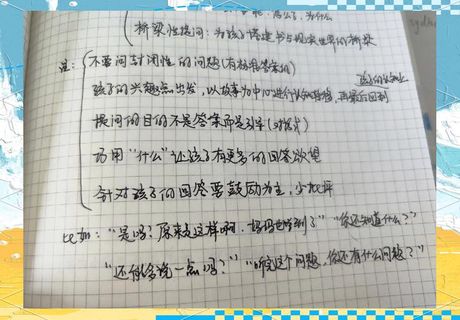 桥梁性提问：为孩子搭建书与现实世界的桥梁
注：
不要问封闭性的问题（有标准答案的）
孩子的兴趣点出发，以故事为中心进行认知
提问的目的不是答案而是引导（对话式）
巧用“什么”让孩子有更多的回答欲望
针对孩子的回答要鼓励为主，少批评
比如：“是吗？原来是这样啊，妈妈也学到了”“你还知道什么？”
“还能多说一点吗？”“听完这个问题，你还有什么问题？”